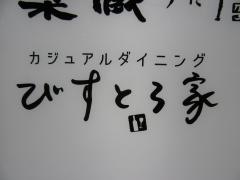 カジュアルダイニング
びすとろ家